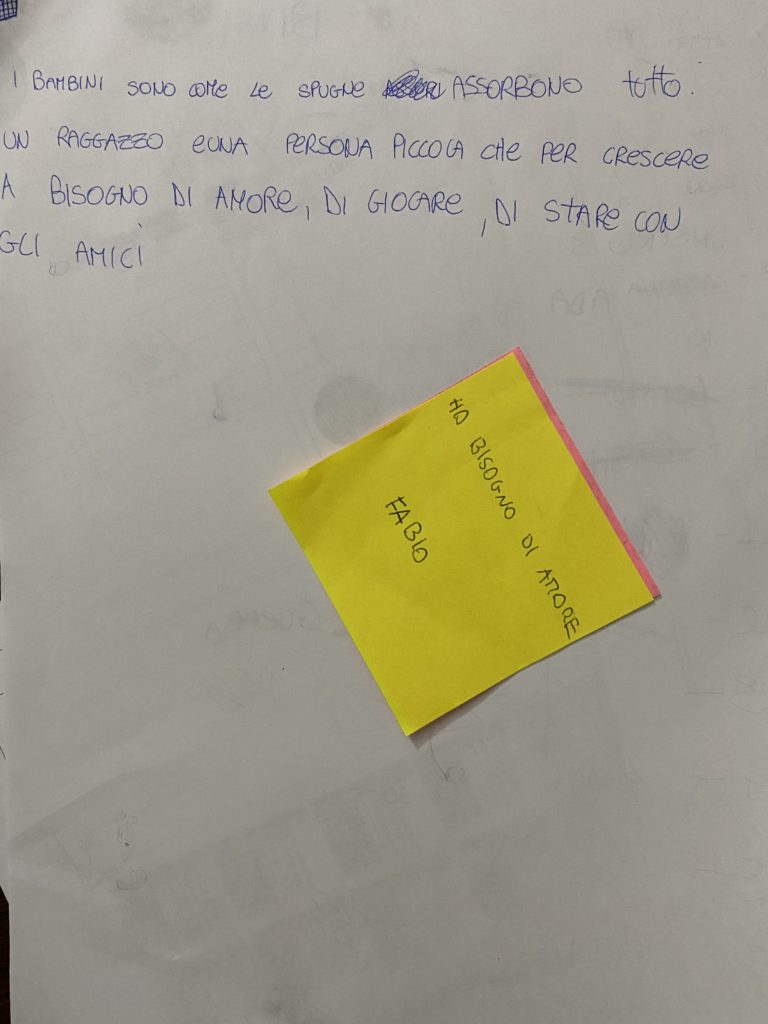 I BAMBINI SONO COME LE SPUGNE ASSORBONO tutto.
UN RAGGAZZO EUNA PERSONA PICCOLA CHE PER CRESCERE
A BISOGNO DI AMORE, DI GIOCARE, DI STARE CON
GLI AMICI
HO BISOGNO DI AMORE
FABIO